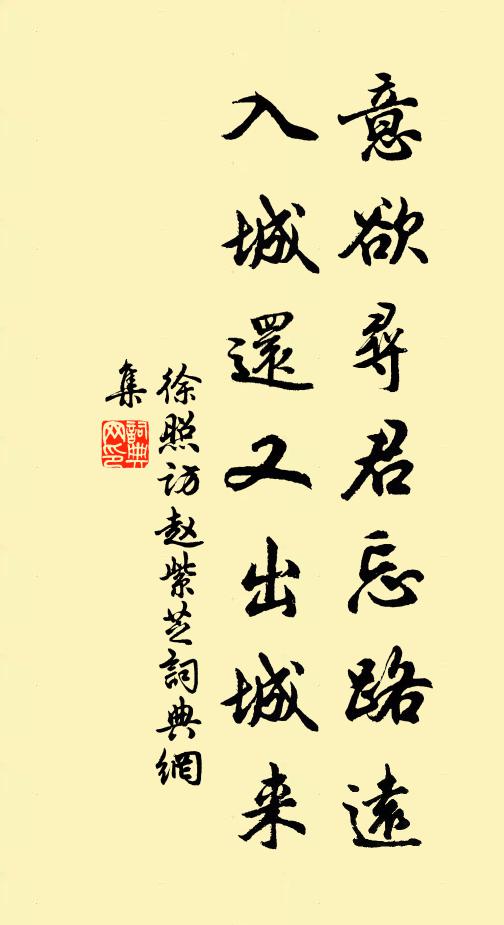 意欲尋君忘路遠
入城還又出城来
徐照访赵紫芝詞典網
集
詞典
网印